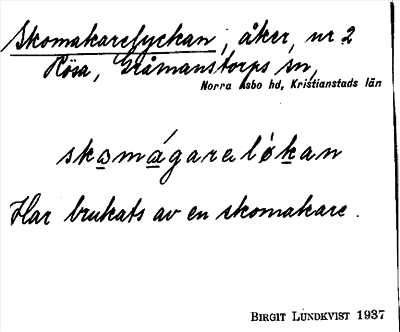 Skomakarelyckan, åker, nr 2
Rösa, Gråmanstorps sn,
Norra Åsbo hd, Kristianstads län
skomágarelókan
Har brukats av en skomakare.
BIRGIT LUNDKVIST 1937